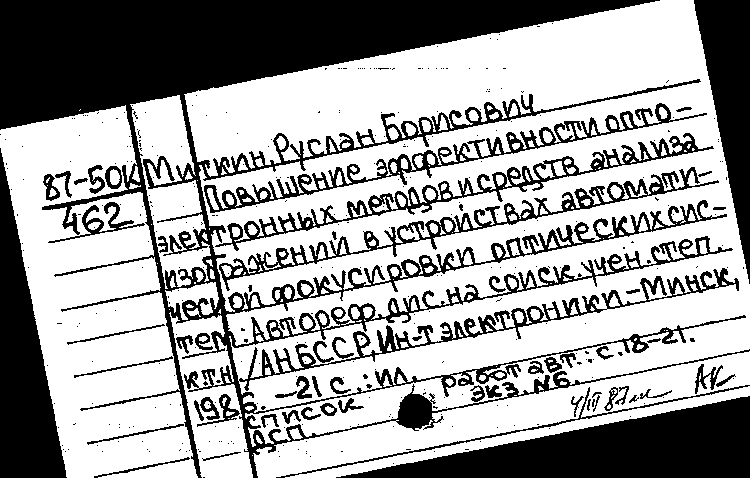 87-50К
462
Миткин, Руслан Борисович
Повышение эффективности опто-
электронных методов и средств анализа
изображений в устройствах автомати-
ческой фокусировки оптических сис-
тем: Автореф. дис. на соиск. учен. степ.
к.т.н. /АН БССР, Ин-т электроники - Минск,
1986. - 21 с.: ил.
список работ авт.: с. 18-21.
ДСП. экз. №6.